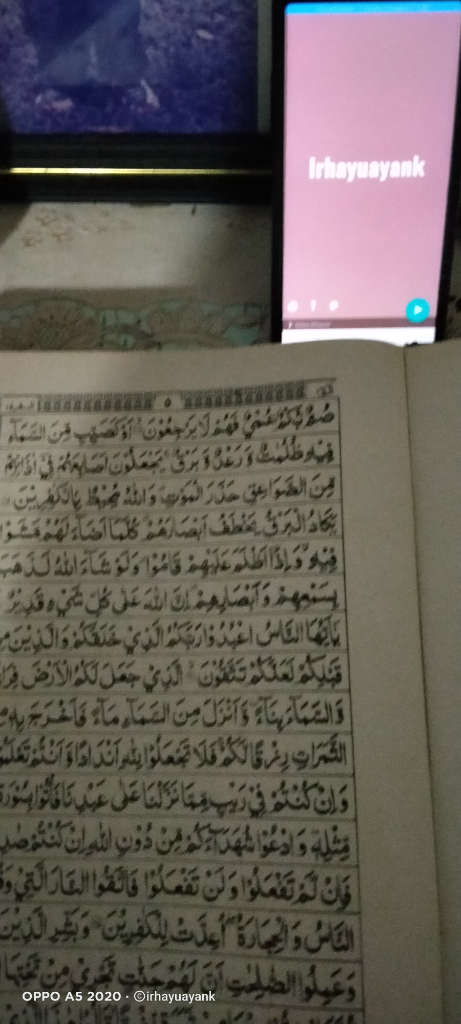 Irhayuayank
٥
صُمٌّۢ بُكْمٌ عُمْيٌ فَهُمْ لَا يَرْجِعُوْنَ اَوْ كَصَيِّبٍ مِّنَ السَّمَآءِ
فِيْهِ ظُلُمٰتٌ وَّرَعْدٌ وَّبَرْقٌ يَجْعَلُوْنَ اَصَابِعَهُمْ فِيْٓ اٰذَانِهِمْ
مِّنَ الصَّوَاعِقِ حَذَرَ الْمَوْتِ وَاللّٰهُ مُحِيْطٌۢ بِالْكٰفِرِيْنَ
يَكَادُ الْبَرْقُ يَخْطَفُ اَبْصَارَهُمْ كُلَّمَآ اَضَآءَ لَهُمْ مَّشَوْا
فِيْهِ وَاِذَآ اَظْلَمَ عَلَيْهِمْ قَامُوْا وَلَوْ شَآءَ اللّٰهُ لَذَهَبَ
بِسَمْعِهِمْ وَاَبْصَارِهِمْ اِنَّ اللّٰهَ عَلٰى كُلِّ شَيْءٍ قَدِيْرٌ
يٰٓاَيُّهَا النَّاسُ اعْبُدُوْا رَبَّكُمُ الَّذِيْ خَلَقَكُمْ وَالَّذِيْنَ
قَبْلِكُمْ لَعَلَّكُمْ تَتَّقُوْنَ الَّذِيْ جَعَلَ لَكُمُ الْاَرْضَ
وَّالسَّمَآءَ بِنَآءً وَّاَنْزَلَ مِنَ السَّمَآءِ مَآءً فَاَخْرَجَ بِهٖ
الثَّمَرٰتِ رِزْقًا لَّكُمْ فَلَا تَجْعَلُوْا لِلّٰهِ اَنْدَادًا وَّاَنْتُمْ
وَاِنْ كُنْتُمْ فِيْ رَيْبٍ مِّمَّا نَزَّلْنَا عَلٰى عَبْدِنَا فَأْتُوْا بِسُوْرَةٍ
مِّثْلِهٖ وَادْعُوْا شُهَدَآءَكُمْ مِّنْ دُوْنِ اللّٰهِ اِنْ كُنْتُمْ
فَاِنْ لَّمْ تَفْعَلُوْا وَلَنْ تَفْعَلُوْا فَاتَّقُوا النَّارَ الَّتِيْ
النَّاسُ وَالْحِجَارَةُ اُعِدَّتْ لِلْكٰفِرِيْنَ وَبَشِّرِ الَّذِيْنَ
وَعَمِلُوا الصّٰلِحٰتِ اَنَّ لَهُمْ جَنّٰتٍ تَجْرِيْ مِنْ تَحْتِهَا
OPPO A5 2020 · ©irhayuayank